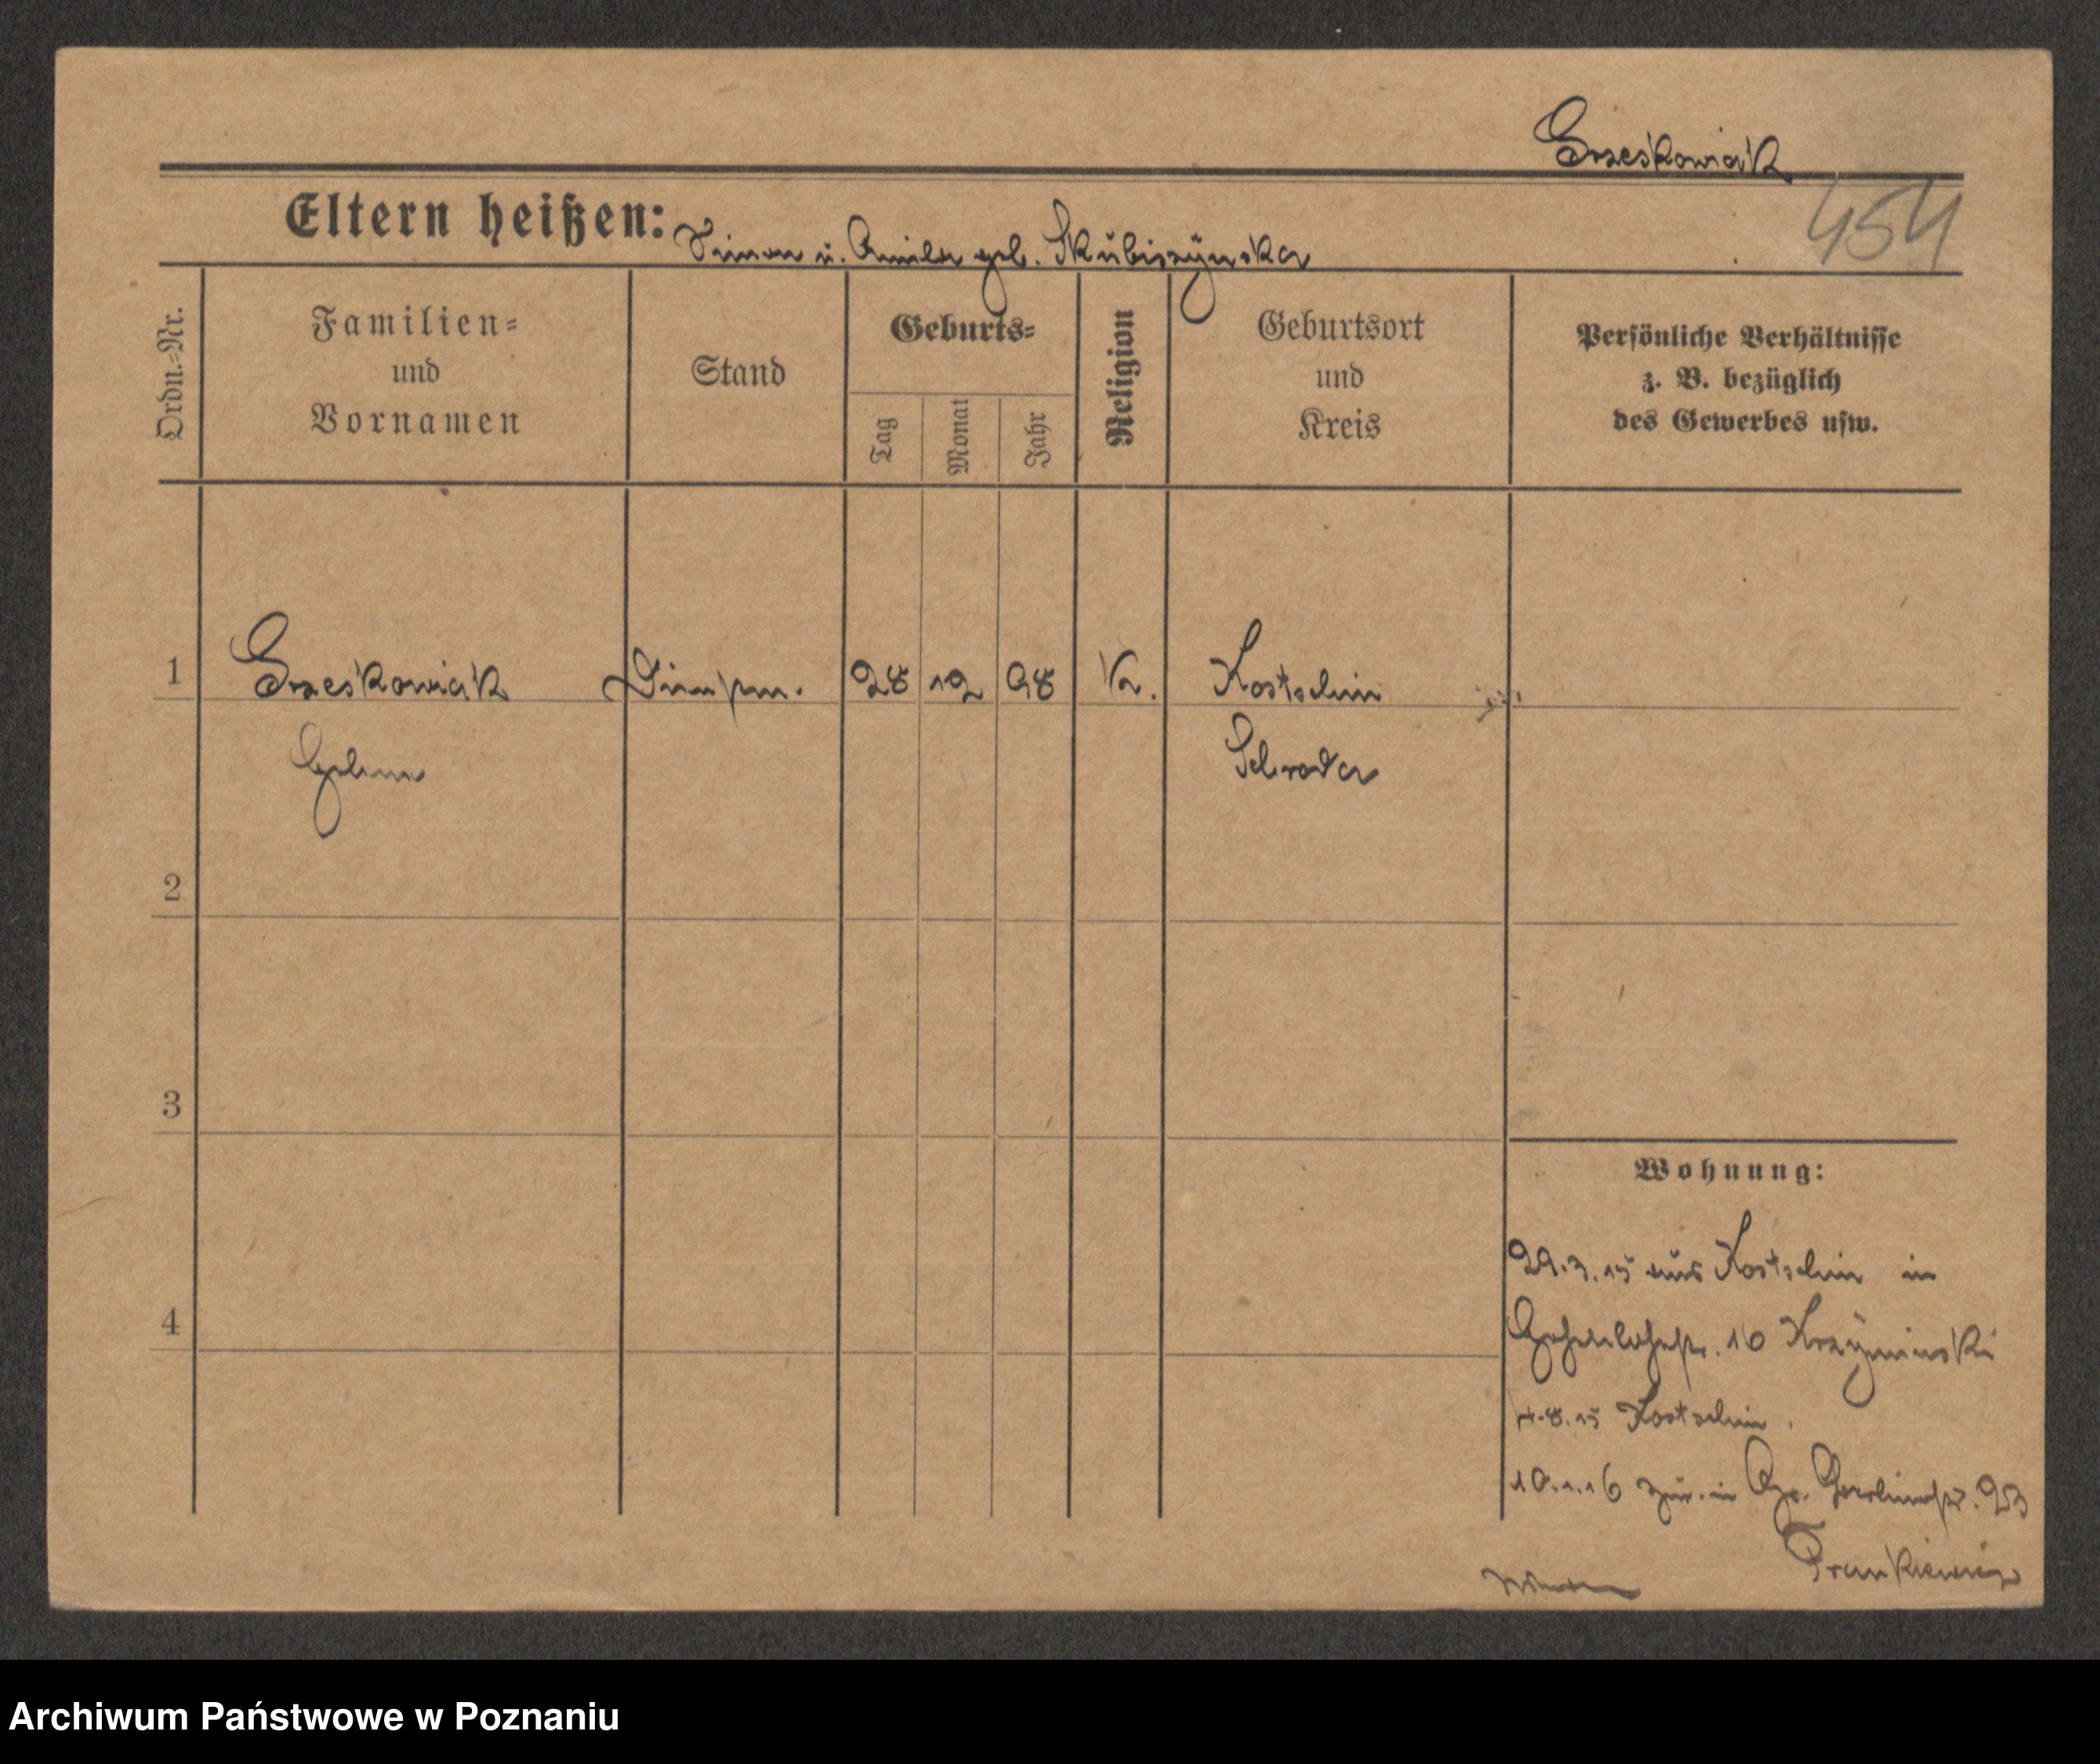 Grzeskowiak
454
Eltern heißen: Simon u. Emilie geb. Skubiszynska
Ordn.-Nr.
Familien-
und
Vornamen
Stand
Geburts-
Tag
Monat
Jahr
Religion
Geburtsort
und
Kreis
Persönliche Verhältnisse
z. B. bezüglich
des Gewerbes usw.
1 Grzeskowiak Dienstm. 28 12 98 K. Kostschin
Helene Schroda
2
3
4
Wohnung:
29.3.15 aus Kostschin in
Hohenlohestr. 10 Krzyminski
4.8.15 Kostschin.
10.1.16 zur. in 23
Frankiewicz
Archiwum Państwowe w Poznaniu